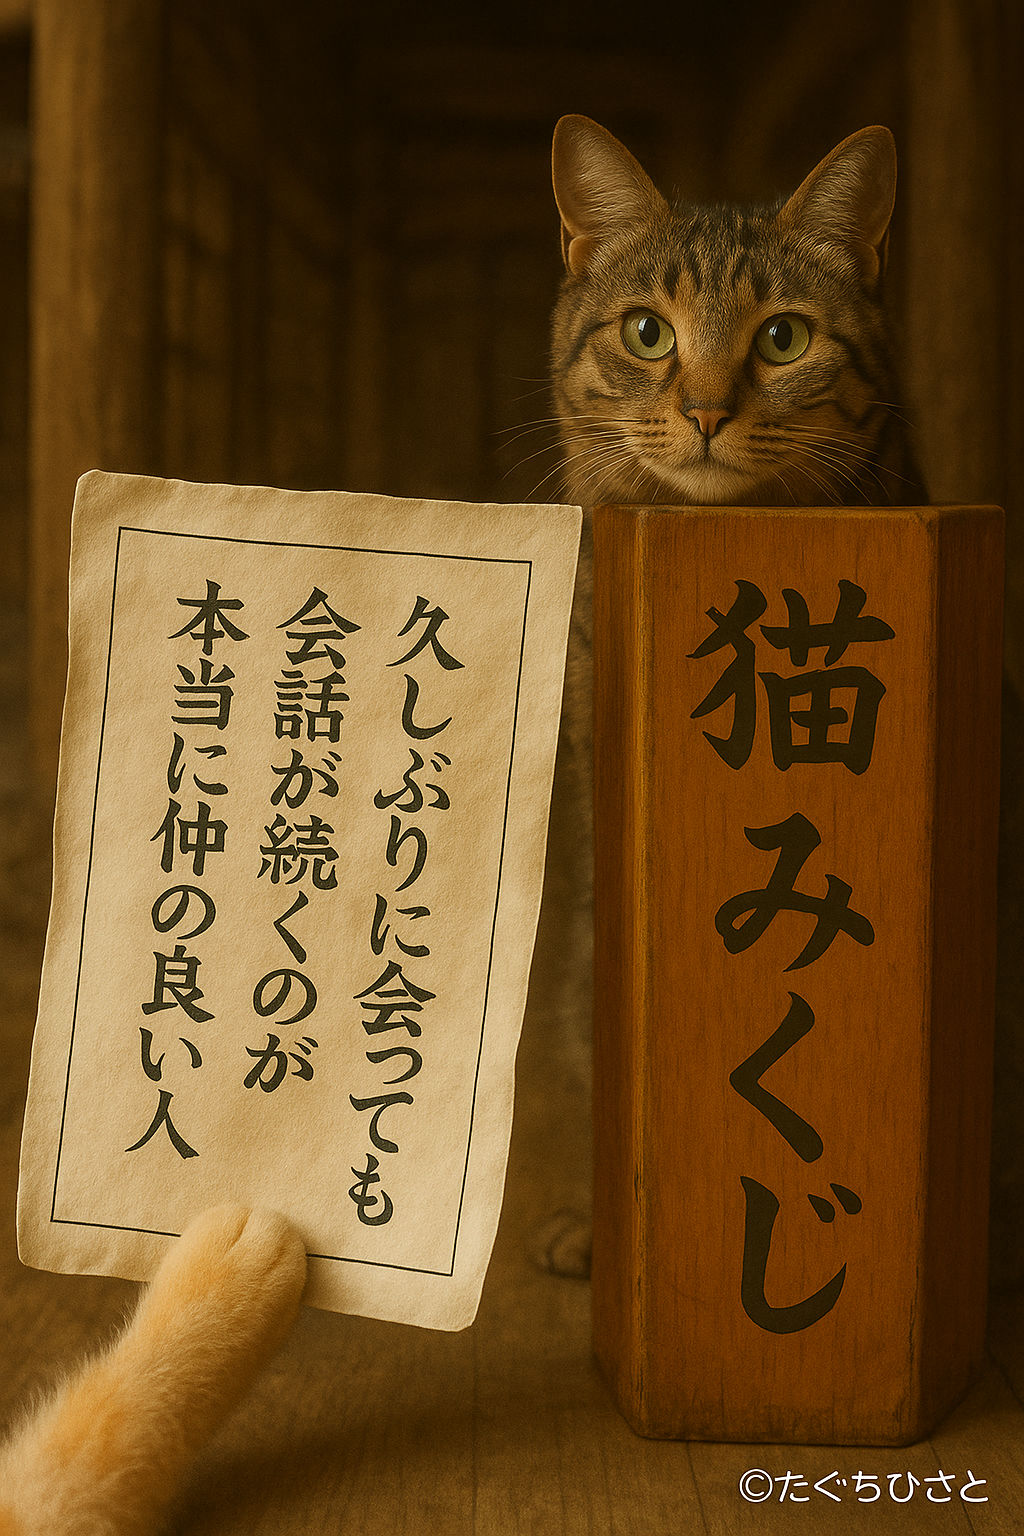 久しぶりに会っても
会話が続くのが
本当に仲の良い人
猫みくじ
©たぐちひさと